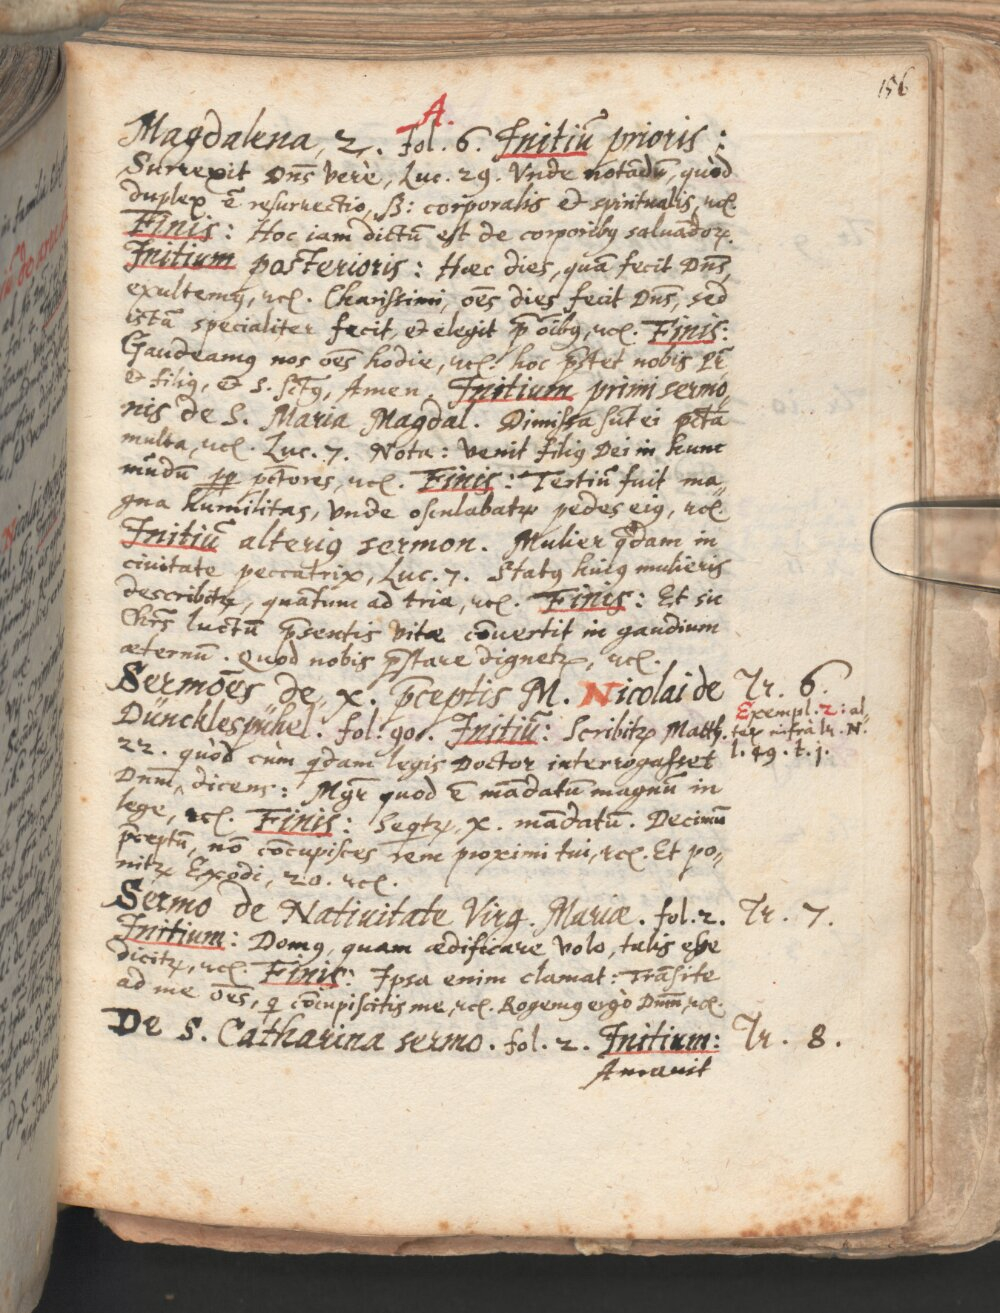 156
A.
Magdalena, 2. fol. 6. Initiũ prioris:
Surrexit Dñs verè, Luc. 29. Vnde notãdũ, quòd
duplex ẽ resurrectio, ß: corporalis et spiritualis, rcl.
Finis: Hoc iam dictũ est de corporibꝰ saluadoꝝ.
Initium posterioris: Hæc dies, quã fecit Dñs,
exultemꝰ, rcl. Charissimi, oẽs dies fecit Dñs, sed
istã specialiter fecit, et elegit p̃ oĩbꝰ, rcl. Finis:
Gaudeamꝰ nos oẽs hodie, rcl. hoc p̃stet nobis Pr̃
et filiꝰ, et S. sctꝰ, Amen. Initium primi sermo„
nis de S. Maria Magdal. Dimissa sũt ei pctã
multa, rcl. Luc. 7. Nota: venit filiꝰ Dei in hunc
mũdũ pp pctõres, rcl. Finis: Tertiũ fuit ma„
gna humilitas, vnde osculabatꝝ pedes eiꝰ, rcl.
Initiũ alteriꝰ sermon. Mulier q̃dam in
ciuitate peccatrix, Luc. 7. Statꝰ huiꝰ mulieris
describitꝝ, quãtum ad tria, rcl. Finis: Et sic
Chr̃s luctũ p̃sentis vitæ cõuertit in gaudium
æternũ. Quod nobis p̃stare dignetꝝ, rcl.
Sermões de x. p̃ceptis M. Nicolai de
Düncklespühel. fol. 901. Initiũ: Scribitꝝ Matth.
22. quòd cùm q̃dam legis Doctor interrogasset
Dñm, dicens: Mgr̃ quod ẽ mãdatũ magnũ in
lege, rcl. Finis: Seqtꝝ x. mãdatũ. Decimũ
p̃ceptũ, nõ cõcupisces rem proximi tui, rcl. Et po„
nitꝝ Exodi, 20. rcl.
Tr. 6.
Exempl. 2: al„
ter infrà lr. N.
l. 49. t. j.
Sermo de Natiuitate Virg. Mariæ. fol. 2.
Tr. 7.
Initium: Domꝰ, quam ædificare volo, talis esse
dicitꝝ, rcl. Finis: Ipsa enim clamat: Trãsite
ad me oẽs, q̃ cõcupiscitis me, rcl. Rogemꝰ ergò Dñm, rcl.
De S. Catharina sermo. fol. 2. Initium:
Tr. 8.
Amauit